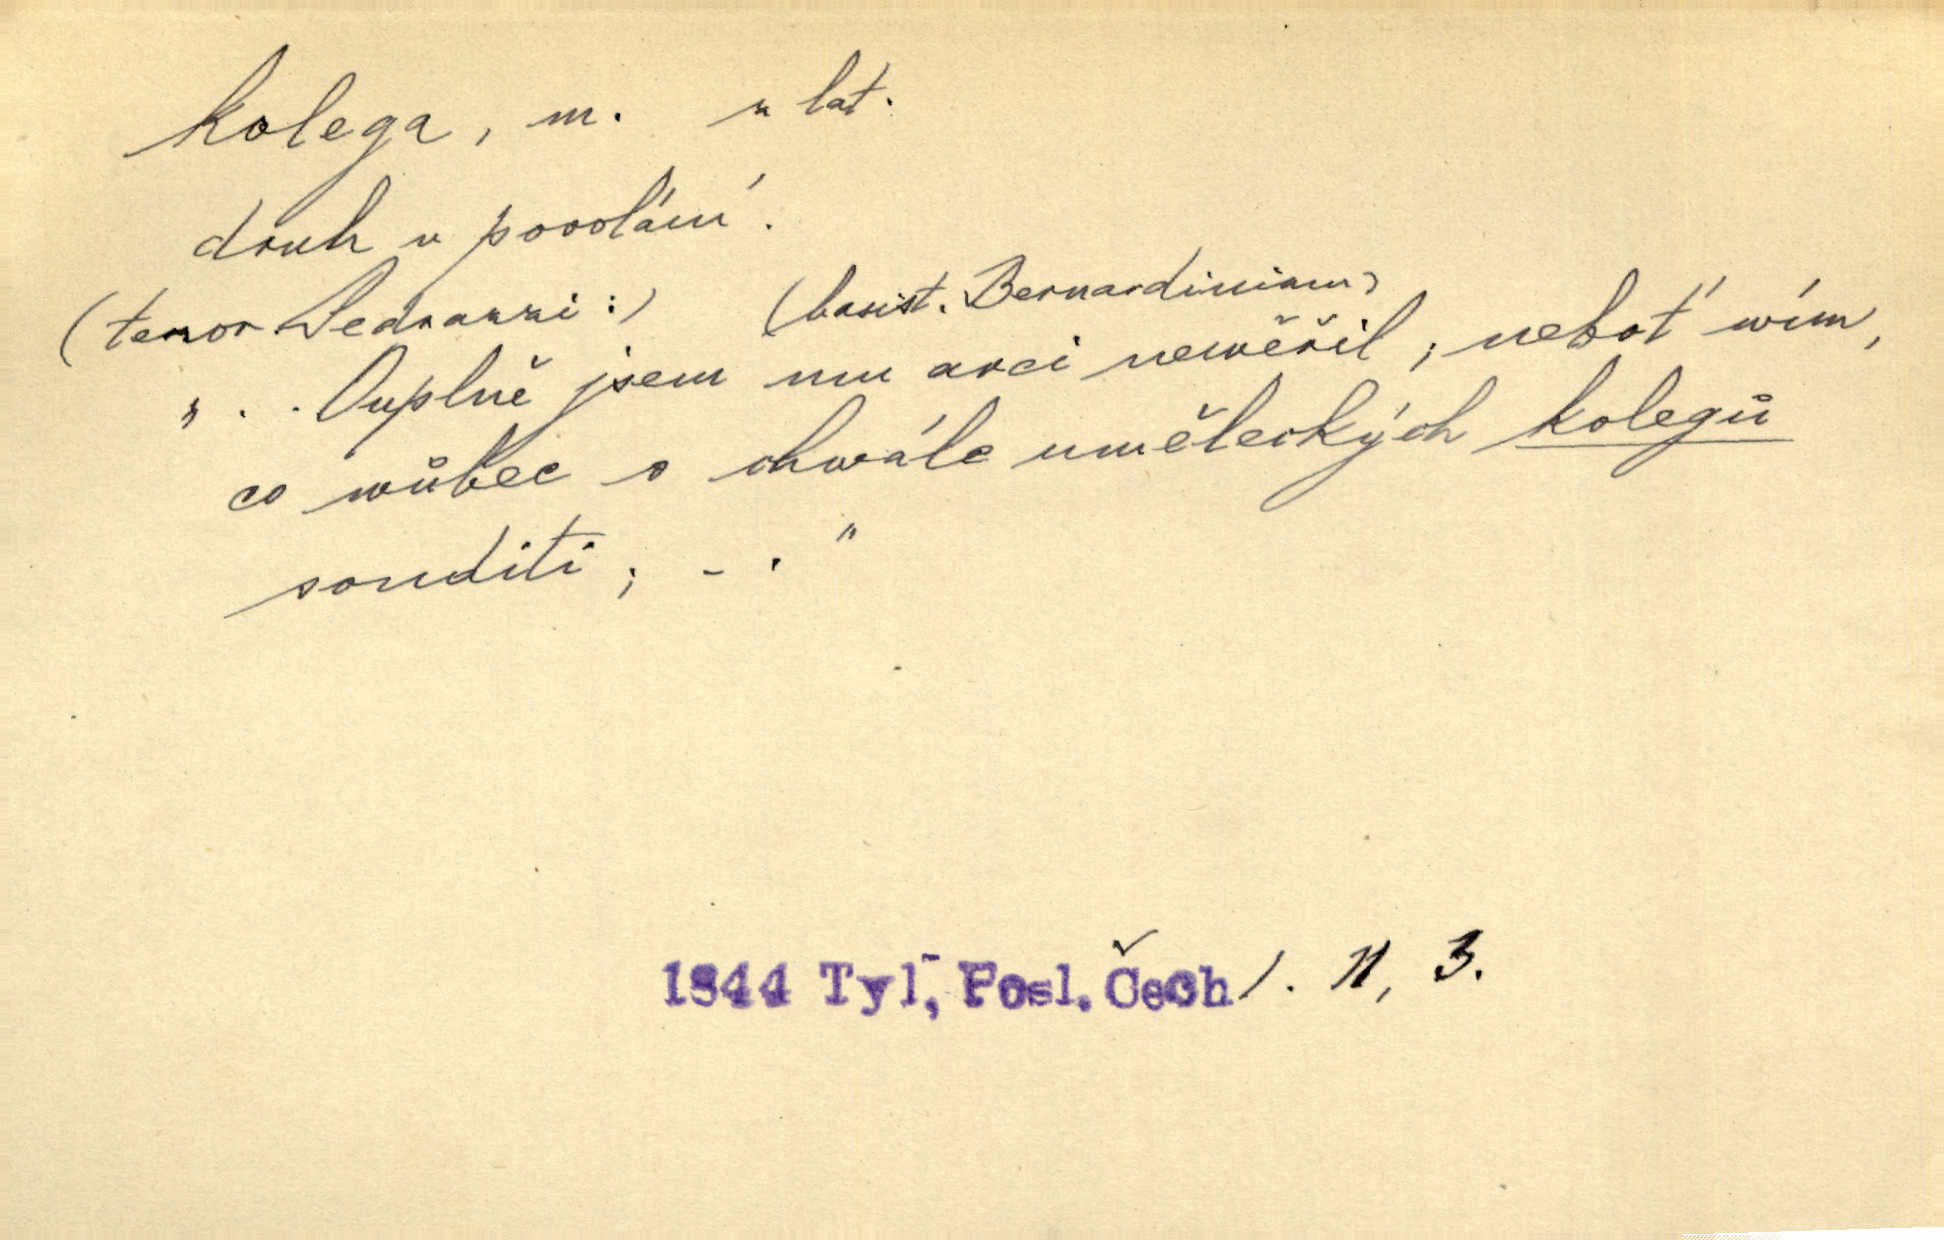 kolega, m. z lat.
druh v povolání.
(tenor Pedrazzi:) (basist. Bernardinimu)
„ . . Ouplně jsem mu arci newěřil; neboť wím,
co wůbec o chwále uměleckých kolegů
souditi; - . "
1844 Tyl, Posl. Čech /. II, 3.